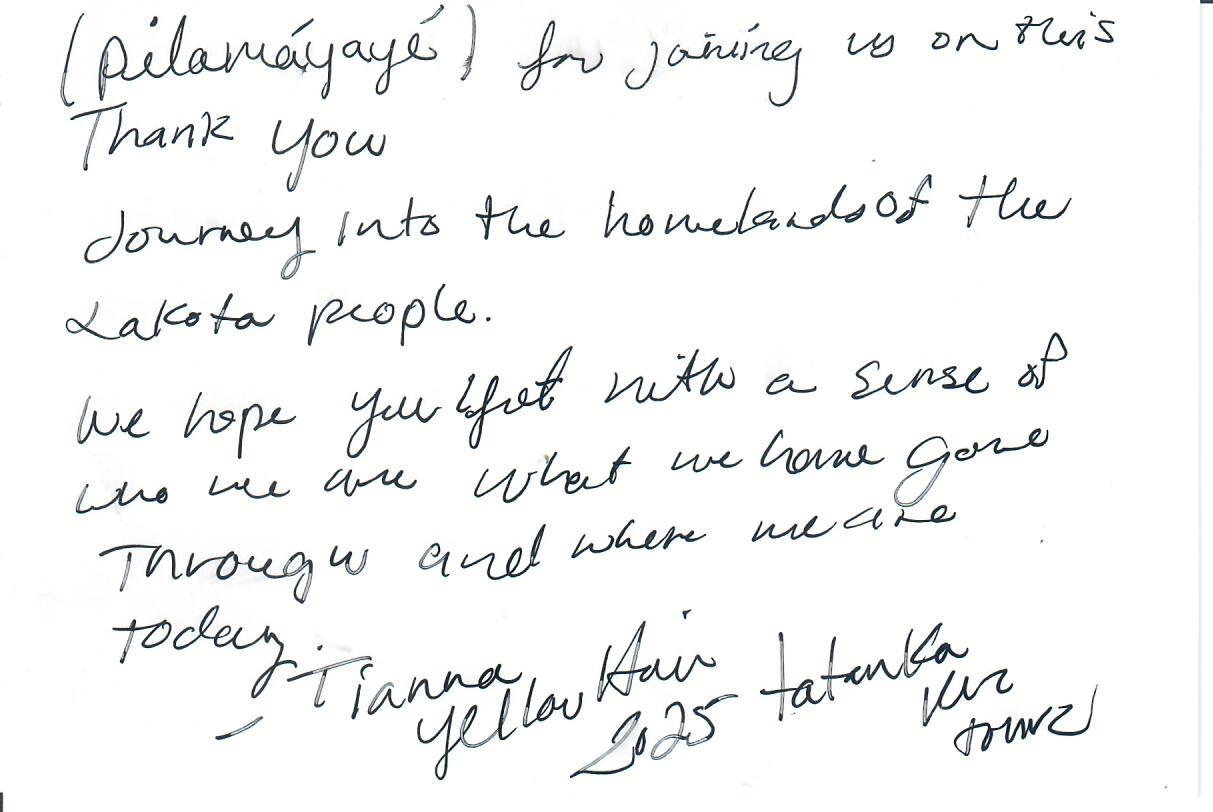 (pilamáyayé) for joining us on this
Thank you
Journey into the homelands of the
Lakota people.
We hope you left with a sense of
who we are what we have gone
Through and where we are
today.
- Tianna Yellow Hair
2025 tatanka
tours